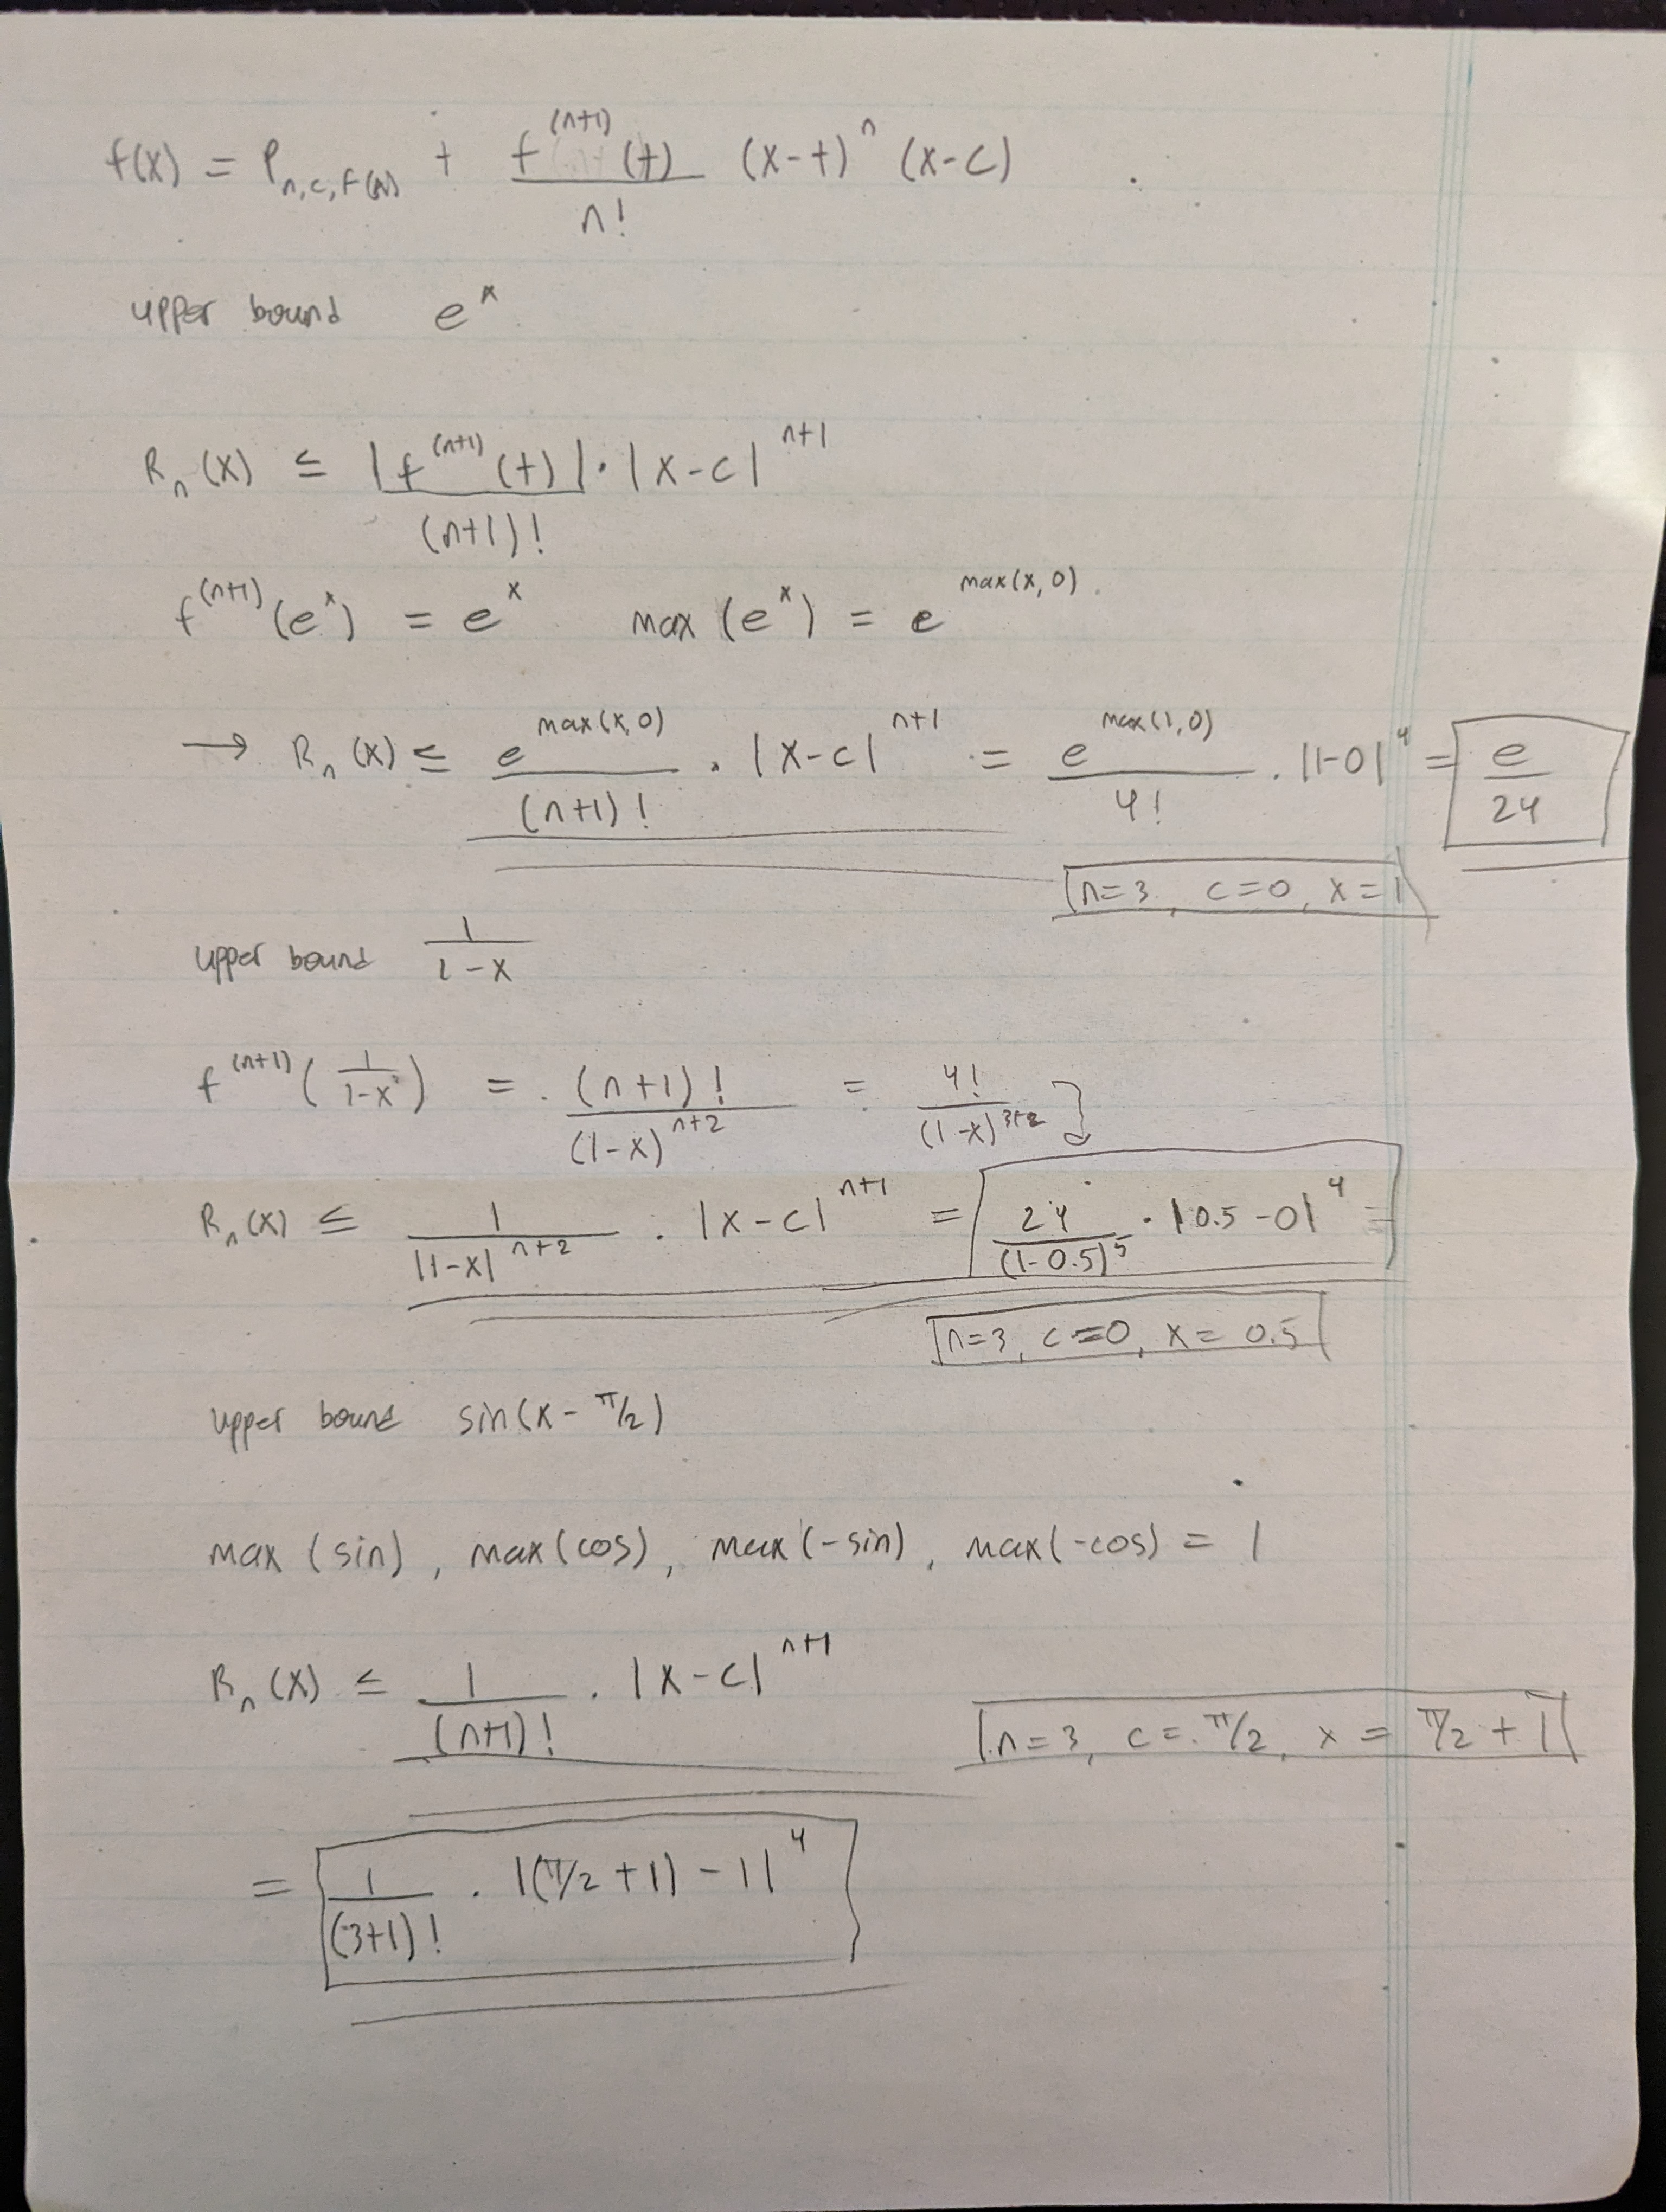 f(x) = P_{n,c,f(x)} + f^{(n+1)}(t)/n! (x-t)^n (x-c)
upper bound e^x
R_n(x) ≤ |f^{(n+1)}(t)|/(n+1)! · |x-c|^{n+1}
f^{(n+1)}(e^x) = e^x max(e^x) = e^{max(x,0)}
→ R_n(x) ≤ e^{max(x,0)}/(n+1)! · |x-c|^{n+1} = e^{max(1,0)}/4! · |1-0|^4 = e/24
n=3, c=0, x=1
upper bound 1/(1-x)
f^{(n+1)}(1/(1-x)) = (n+1)!/(1-x)^{n+2} = 4!/(1-x)^{3+2}
R_n(x) ≤ 1/|1-x|^{n+2} · |x-c|^{n+1} = 24/(1-0.5)^5 · |0.5-0|^4 =
n=3, c=0, x=0.5
upper bound sin(x-π/2)
max(sin), max(cos), max(-sin), max(-cos) = 1
R_n(x) ≤ 1/(n+1)! · |x-c|^{n+1}
n=3, c=π/2, x=π/2+1
= 1/(3+1)! · |(π/2+1)-1|^4